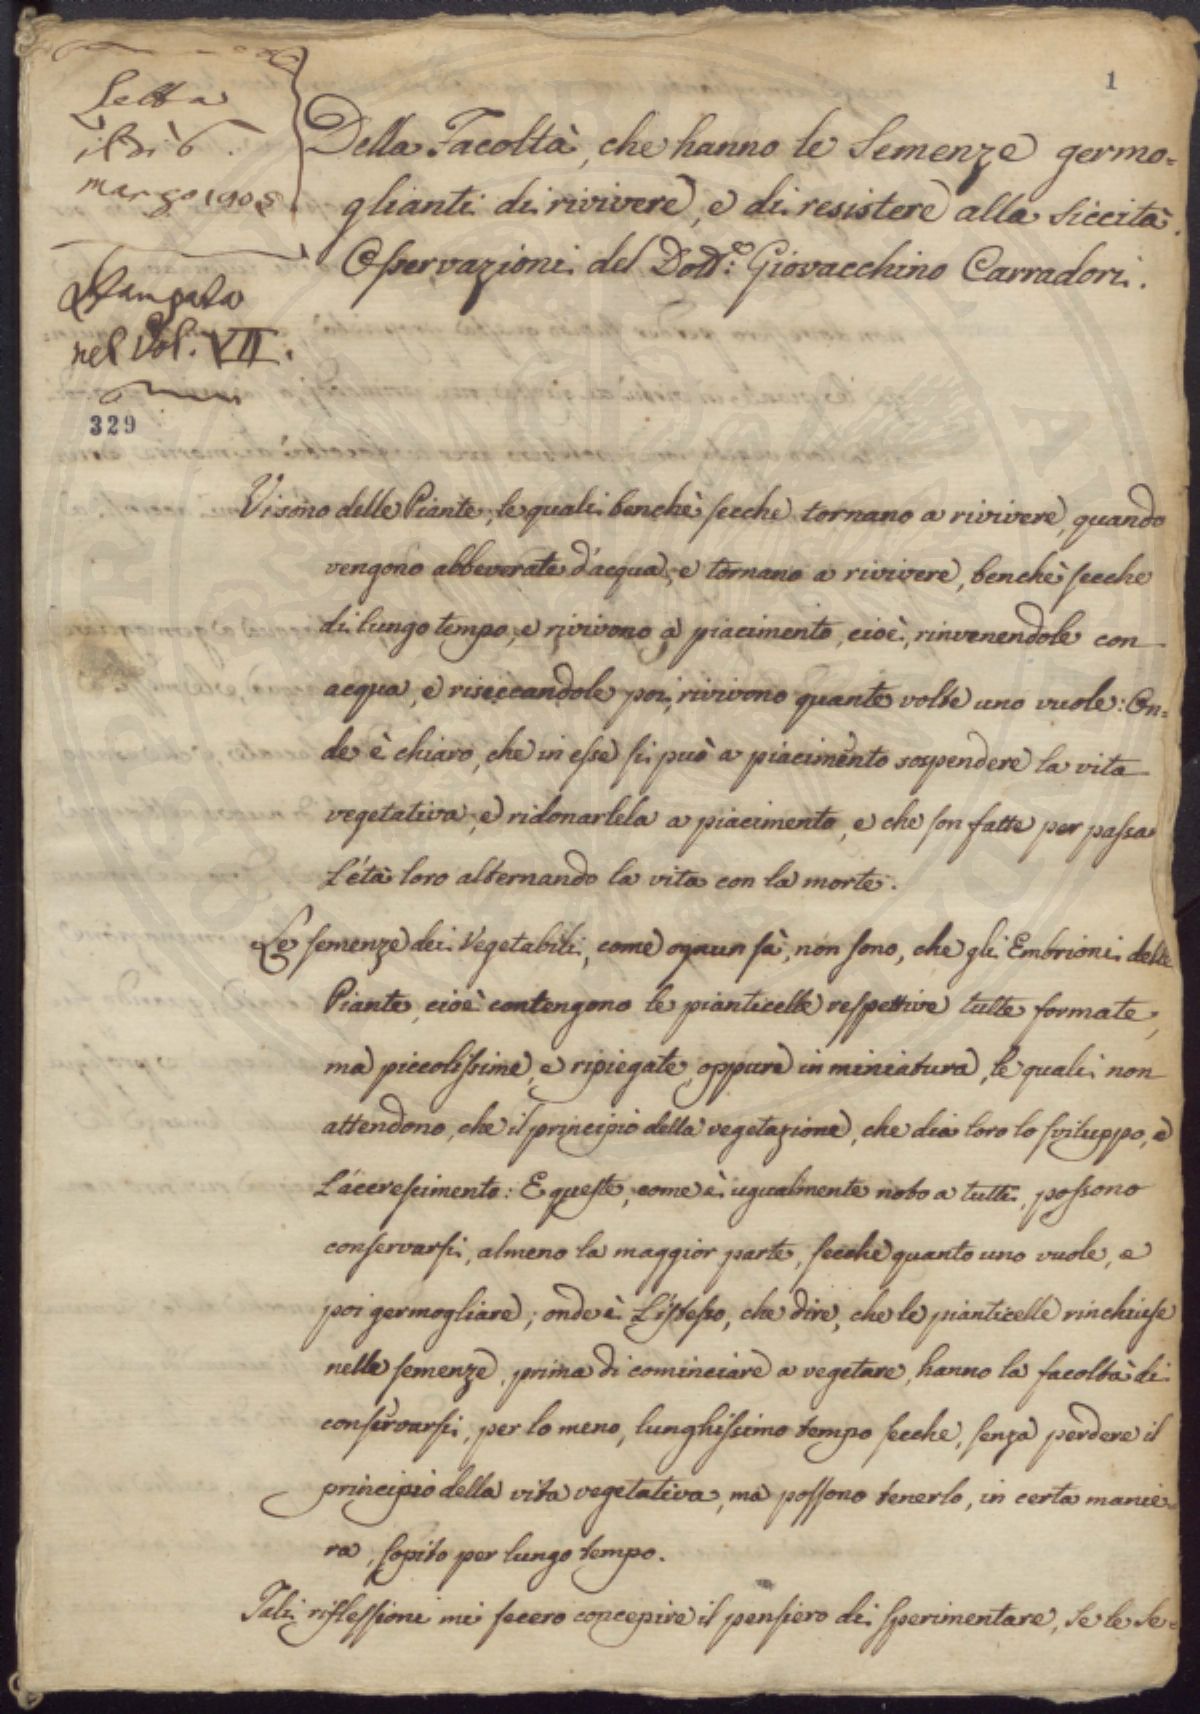 1
Letta
il dì 6.
marzo 1908
Stampata
nel Vol. VII.
329
Della Facoltà, che hanno le Semenze germo=
glianti di rivivere, e di resistere alla siccità.
Osservazioni del Dott.e Giovacchino Carradori.
Vi sono delle Piante, le quali benchè secche tornano a rivivere, quando
vengono abbeverate d'acqua, e tornano a rivivere, benchè secche
di lungo tempo, e rivivono a piacimento, cioè, rinvenendole con
acqua, e riseccandole poi, rivivono quante volte uno vuole: On=
de è chiaro, che in esse si può a piacimento sospendere la vita
vegetativa, e ridonarlela a piacimento, e che son fatte per passa
l'età loro alternando la vita con la morte.
Le semenze dei Vegetabili, come ognun sà, non sono, che gli Embrioni delle
Piante, cioè contengono le pianticelle respettive tutte formate,
ma piccolissime, e ripiegate, oppure in miniatura, le quali non
attendono, che il principio della vegetazione, che dia loro lo sviluppo, e
l'accrescimento: E queste, come è ugualmente noto a tutti, possono
conservarsi, almeno la maggior parte, secche quanto uno vuole, e
poi germogliare; onde è l'istesso, che dire, che le pianticelle rinchiuse
nelle semenze, prima di cominciare a vegetare, hanno la facoltà di
conservarsi, per lo meno, lunghissimo tempo secche, senza perdere il
principio della vita vegetativa, ma possono tenerlo, in certa manie=
ra, sopito per lungo tempo.
Tali riflessioni mi fecero concepire il pensiero di sperimentare, se le se=